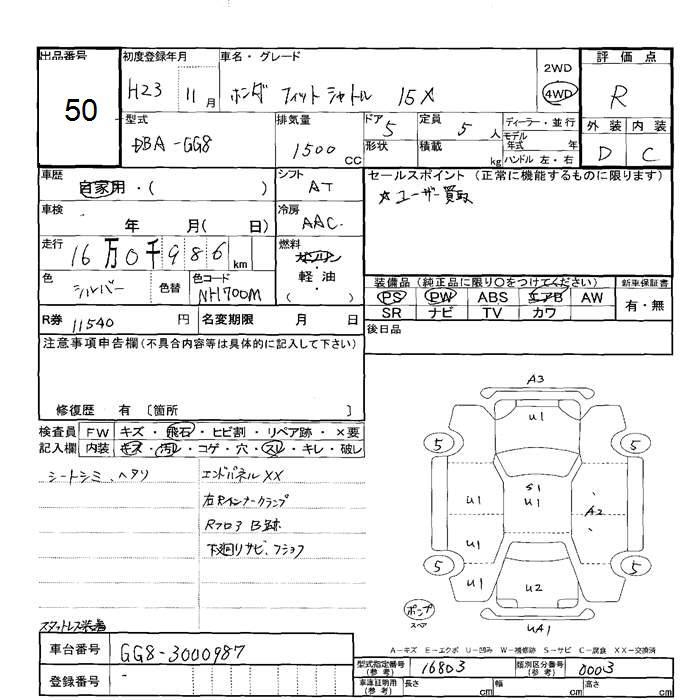 出品番号 初度登録年月 車名・グレード 評価点
50 H23 11月 ホンダ フィットシャトル 15X 2WD 4WD R
型式 排気量 ドア 定員 ディーラー・並行 外装 内装
DBA-GG8 1500CC 5 5人 モデル年式 年 D C
形状 積載 kg ハンドル 左・右
車歴 シフト セールスポイント (正常に機能するものに限ります)
自家用・( ) AT ☆ユーザー買取
車検 年 月( 日) 冷房 AAC
走行 16万0千986km 燃料 ガソリン・軽油 ( )
装備品 (純正品に限り○をつけてください) 新車保証書
色 シルバー 色替 色コード NH700M
PS PW ABS エアB AW 有・無
SR ナビ TV カワ
R券 11540円 名変期限 月 日 後日品
注意事項申告欄(不具合内容等は具体的に記入して下さい)
修復歴 有 〔箇所 〕
検査員 FW キズ・飛石・ヒビ割・リペア跡・×要
記入欄 内装 キズ・汚レ・コゲ・穴・スレ・キレ・破レ
シートシミ、ヘタリ エンドパネルXX
右Rインナークランプ
Rフロア B跡
下廻リサビ、フショク
A3
U1
5 5
S1
U1 U1 A2
U1
5 5
U1 U2
ポンプ
スペア
UA1
スタットレス装着
A-キズ E-エクボ U-凹み W-補修跡 S-サビ C-腐食 XX-交換済
車台番号 GG8-3000987
型式指定番号(参考) 16803 類別区分番号(参考) 0003
登録番号 -
車庫証明用(参考) 長さ cm 幅 cm 高さ cm